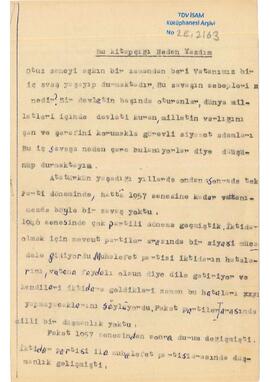 TDV İSAM
Kütüphanesi Arşivi
No 2E.2163
Bu kitapçığı Neden Yazdım
Otuz seneyi aşkın bir zamandan beri Vatanımız bir
iç savaş yaşayıp durmaktadır. Bu savaşın sebepleri
nedir? Bir devletin başında oturanlar, dünya mil-
letleri içinde devleti kuran, milletin varlığını
şan ve şerefini korumakla görevli siyaset adamları
Bu iç savaşa neden çare bulamıyorlar diye düşü-
nüp durmaktayım.
Atatürkün yaşadığı yıllarda ondan sonra tek
parti döneminde, hatta 1957 senesine kadar vatanı-
mızda böyle bir savaş yoktu.
1946 senesinde çok partili döneme geçmiştik, İktidar
olmak için mevcut partiler arasında bir siyasi müca-
dele gidiyordu. Muhalefet partisi iktidarın hatala-
rını, vatana faydalı olsun diye dile getiriyor ve
kendileri iktidara geldikleri zaman bu hataları
yapmayacaklarını söylüyordu. Fakat partiler arasında
milli bir düşmanlık yoktu.
Fakat 1957 senesinden sonra durum değişmişti.
İktidar partisi ile muhalefet partisi arasında düş-
manlık gelişmişti.